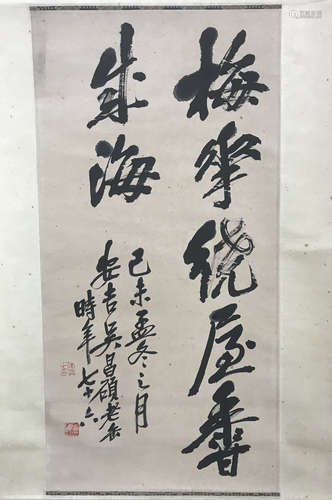 梅華繞屋香
成海
己未孟冬之月
安吉吳昌碩老缶
時年七十六